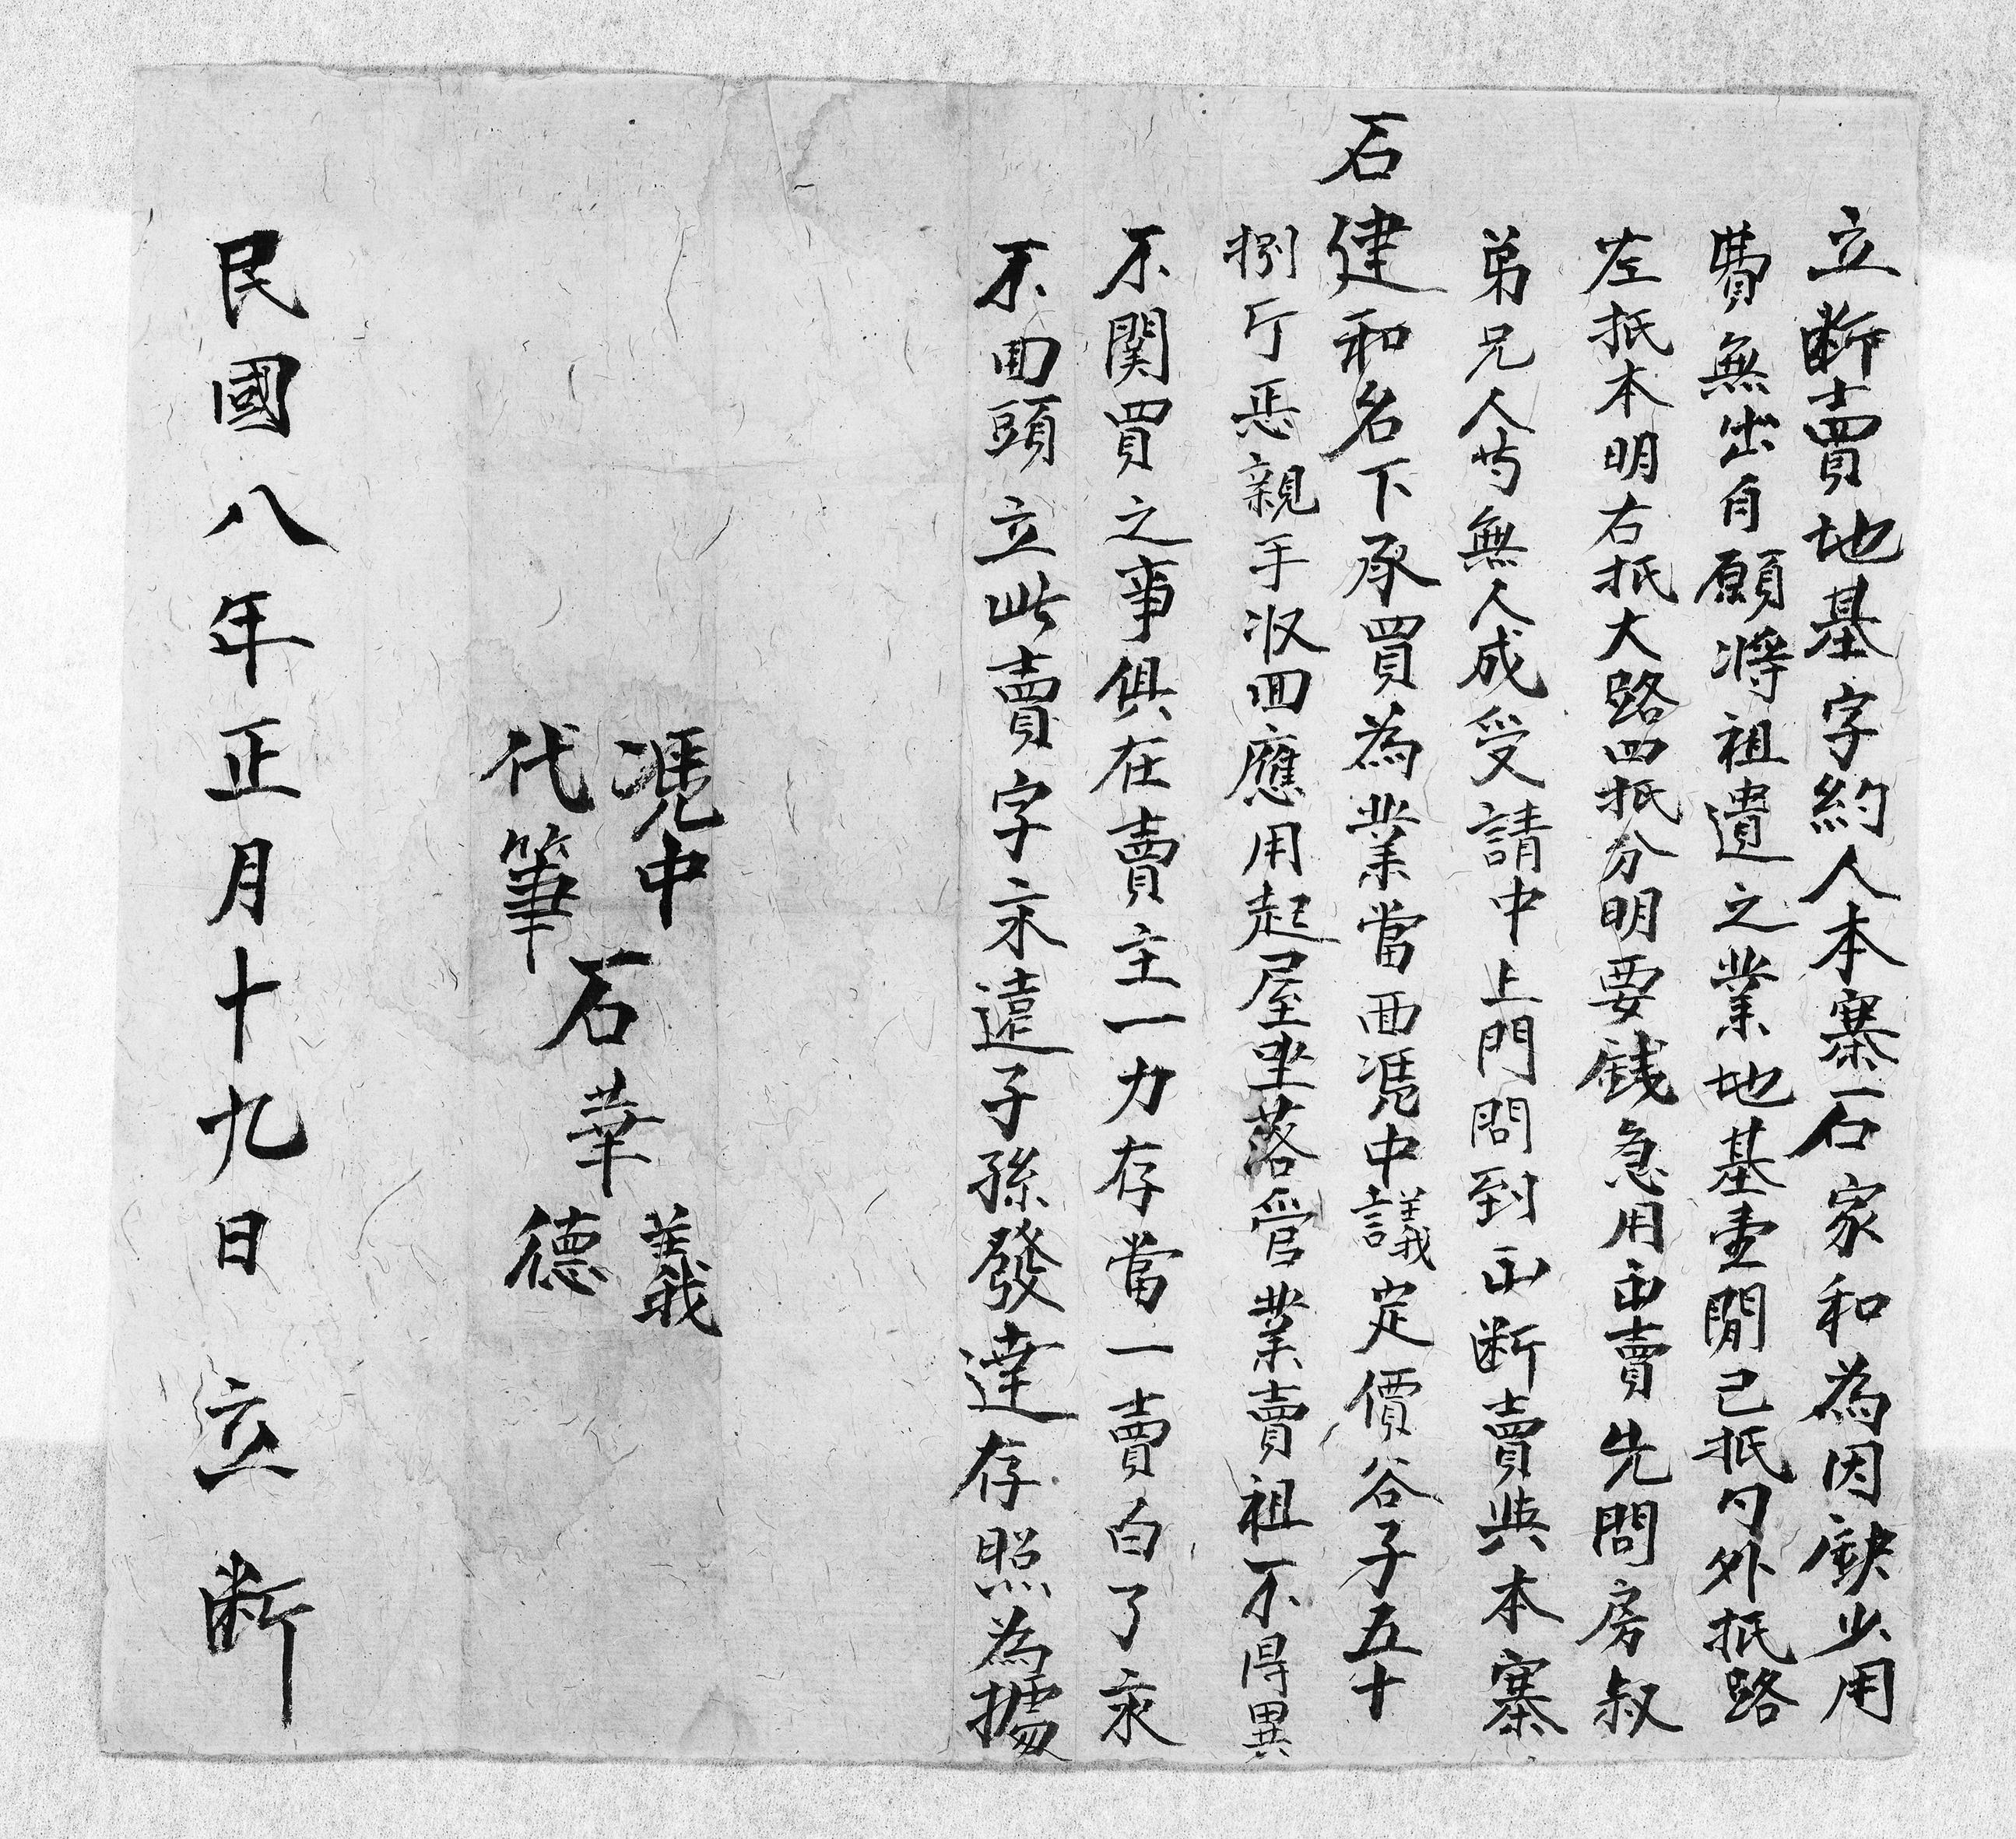 立断賣地基字約人本寨石家和為因缺少用
費無出自願將祖遺之業地基壹間己抵勺外抵路
左抵本明右抵大路四抵分明要錢急用出賣先問房叔
弟兄人等無人成受請中上門問到出断賣與本寨
石建和名下承買為業當面憑中議定價谷子五十
捌斤恁親手收回應用起屋坐落管業賣祖不得異
不関買之事俱在賣主一力存當一賣百了永
不回頭立此賣字永遠子孫發達存照為據
憑中
代筆
石華
義
德
民國八年正月十九日 立 断